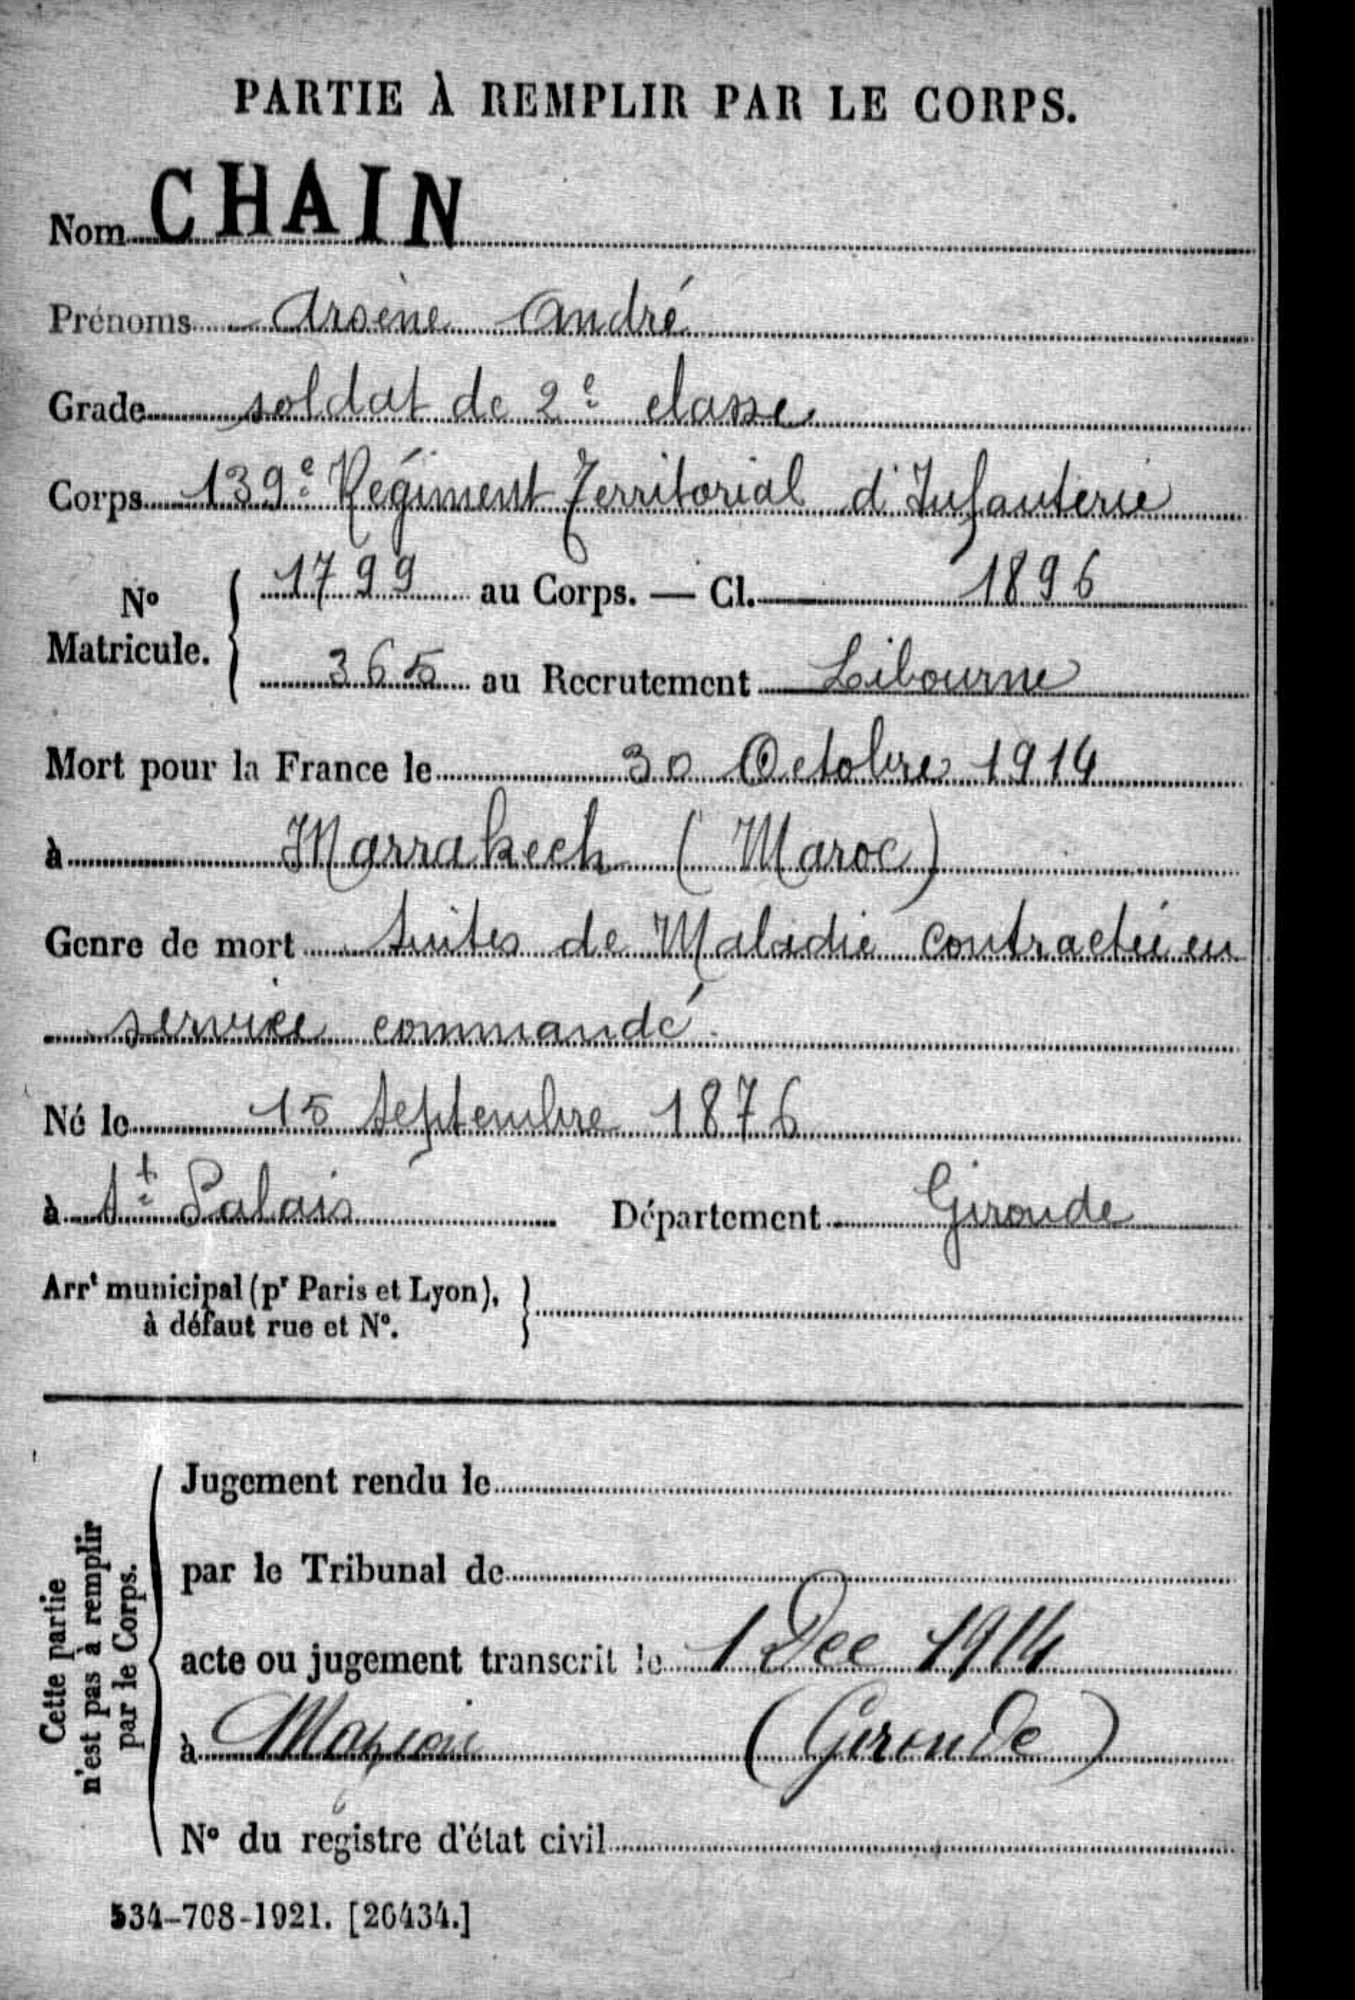 PARTIE À REMPLIR PAR LE CORPS.
Nom CHAIN
Prénoms Arsène André
Grade soldat de 2e classe
Corps 139e Régiment Territorial d'Infanterie
No Matricule. { 1799 au Corps. — Cl. 1896
365 au Recrutement Libourne
Mort pour la France le 30 Octobre 1914
à Marrakech (Maroc)
Genre de mort suites de Maladie contractée en
service commandé.
Né le 15 septembre 1876
à St Palais Département Gironde
Arrt municipal (pr Paris et Lyon),
à défaut rue et No.
Jugement rendu le
par le Tribunal de
acte ou jugement transcrit le 1 Dec 1914
à Mazion (Gironde)
No du registre d'état civil
Cette partie
n'est pas à remplir
par le Corps.
534-708-1921. [26434.]